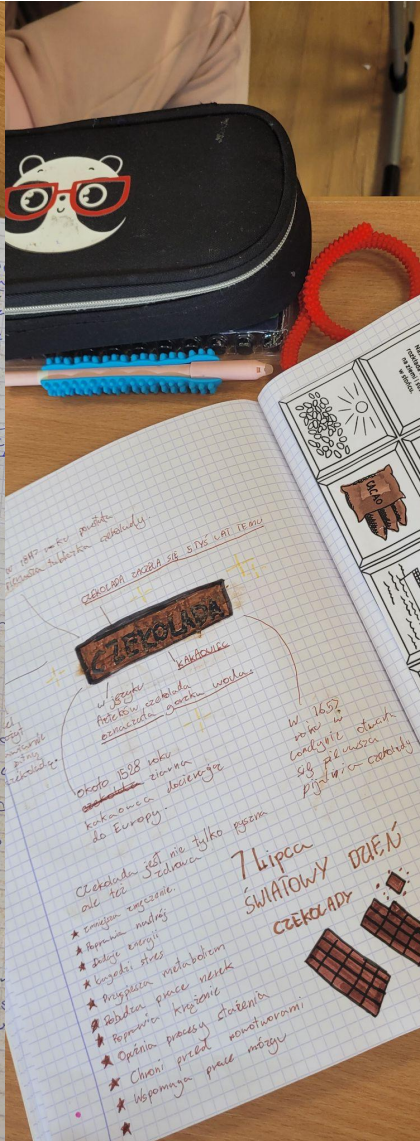 w 1847 roku powstała
pierwsza tabliczka czekolady.
CZEKOLADA ZACZĘŁA SIĘ 5 TYŚ LAT TEMU
CZEKOLADA
KAKAOWIEC
w języku
Azteków czekolada
oznaczała gorzka woda.
Około 1528 roku
ziarna
kakaowca docierają
do Europy.
W 1657
roku w
Londynie otwarto
się pierwsza
pijalnia czekolady
Czekolada jest nie tylko pyszna
ale też zdrowa
zmniejsza zmęczenie.
Poprawia nastrój
Dodaje energii
Łagodzi stres
Przyspiesza metabolizm
Pobudza prace nerek
Poprawia krążenie
Opóźnia procesy starzenia
Chroni przed nowotworami
Wspomaga prace mózgu
7 Lipca
ŚWIATOWY DZIEŃ
CZEKOLADY
CACAO
na ziemi i
w słońcu.